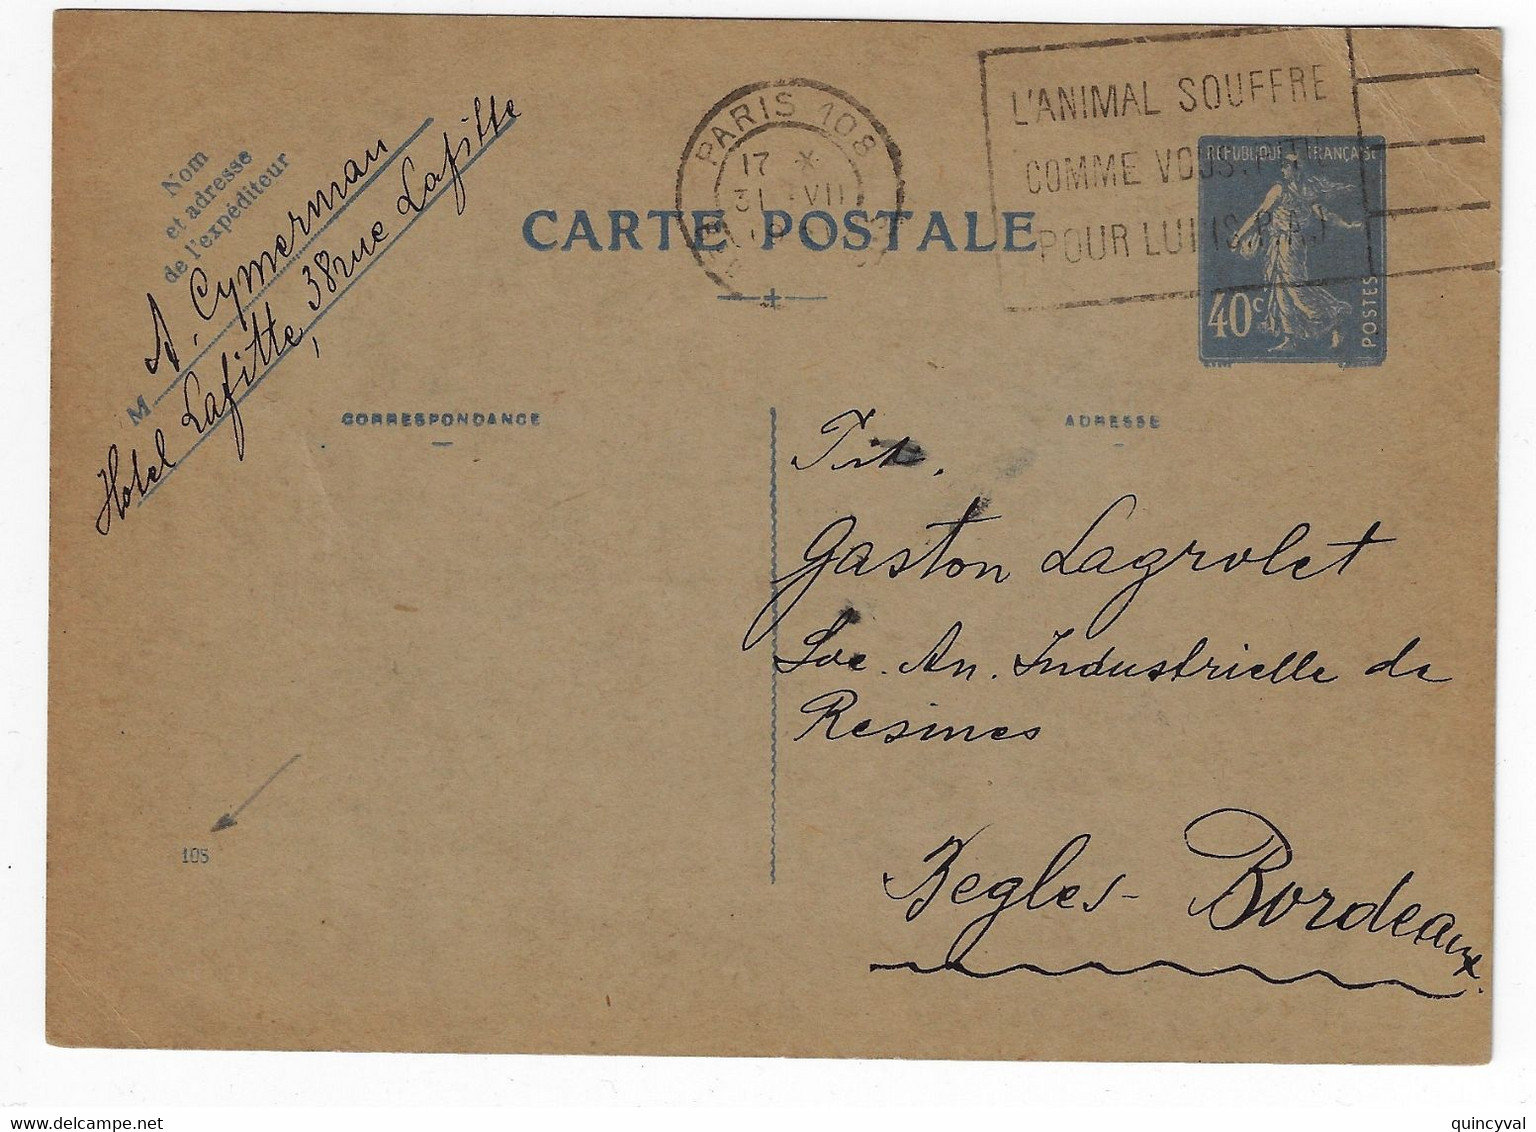 Nom
et adresse
de l'expéditeur
M A. Cymerman
Hotel Lafitte, 38 rue Lafitte
PARIS 108
17 *
31 VII
CARTE POSTALE
L'ANIMAL SOUFFRE
COMME VOUS
POUR LUI (S.P.A.)
REPUBLIQUE FRANÇAISE
40c
POSTES
CORRESPONDANCE
ADRESSE
Gaston Lagrolet
Soc. An. Industrielle de
Resines
Begles - Bordeaux.
105
delcampe.net
quincyval